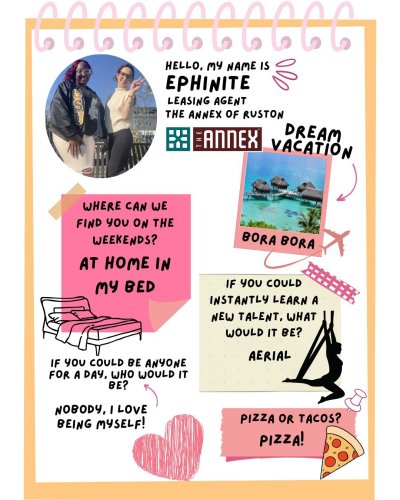 HELLO, MY NAME IS
EPHINITE
LEASING AGENT
THE ANNEX OF RUSTON
THE ANNEX
DREAM
VACATION
BORA BORA
WHERE CAN WE
FIND YOU ON THE
WEEKENDS?
AT HOME IN
MY BED
IF YOU COULD
INSTANTLY LEARN A
NEW TALENT, WHAT
WOULD IT BE?
AERIAL
IF YOU COULD BE ANYONE
FOR A DAY, WHO WOULD IT
BE?
NOBODY, I LOVE
BEING MYSELF!
PIZZA OR TACOS?
PIZZA!